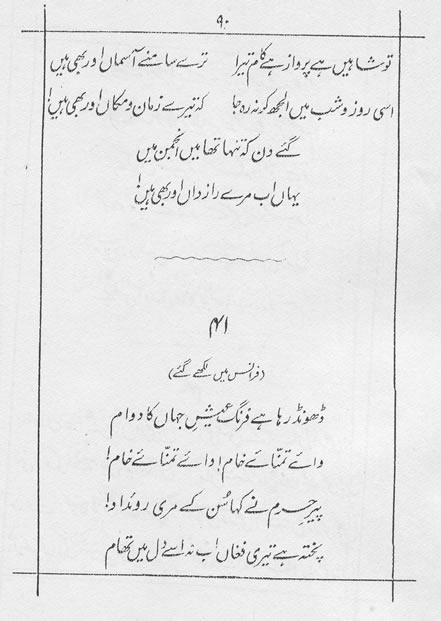 ۹۰
تو شاہیں ہے پرواز ہے کام تیرا ترے سامنے آسماں اور بھی ہیں
اسی روز و شب میں الجھ کر نہ رہ جا کہ تیرے زمان و مکاں اور بھی ہیں!
گئے دن کہ تنہا تھا میں انجمن میں
یہاں اب مرے رازداں اور بھی ہیں!
۴۱
(فرانس میں لکھے گئے)
ڈھونڈ رہا ہے فرنگ عیشِ جہاں کا دوام
وائے تمنّائے خام! وائے تمنّائے خام!
پیرِ حرم نے کہا سُن کے مری روئداد!
پختہ ہے تیری فغاں اب نہ اسے دل میں تھام